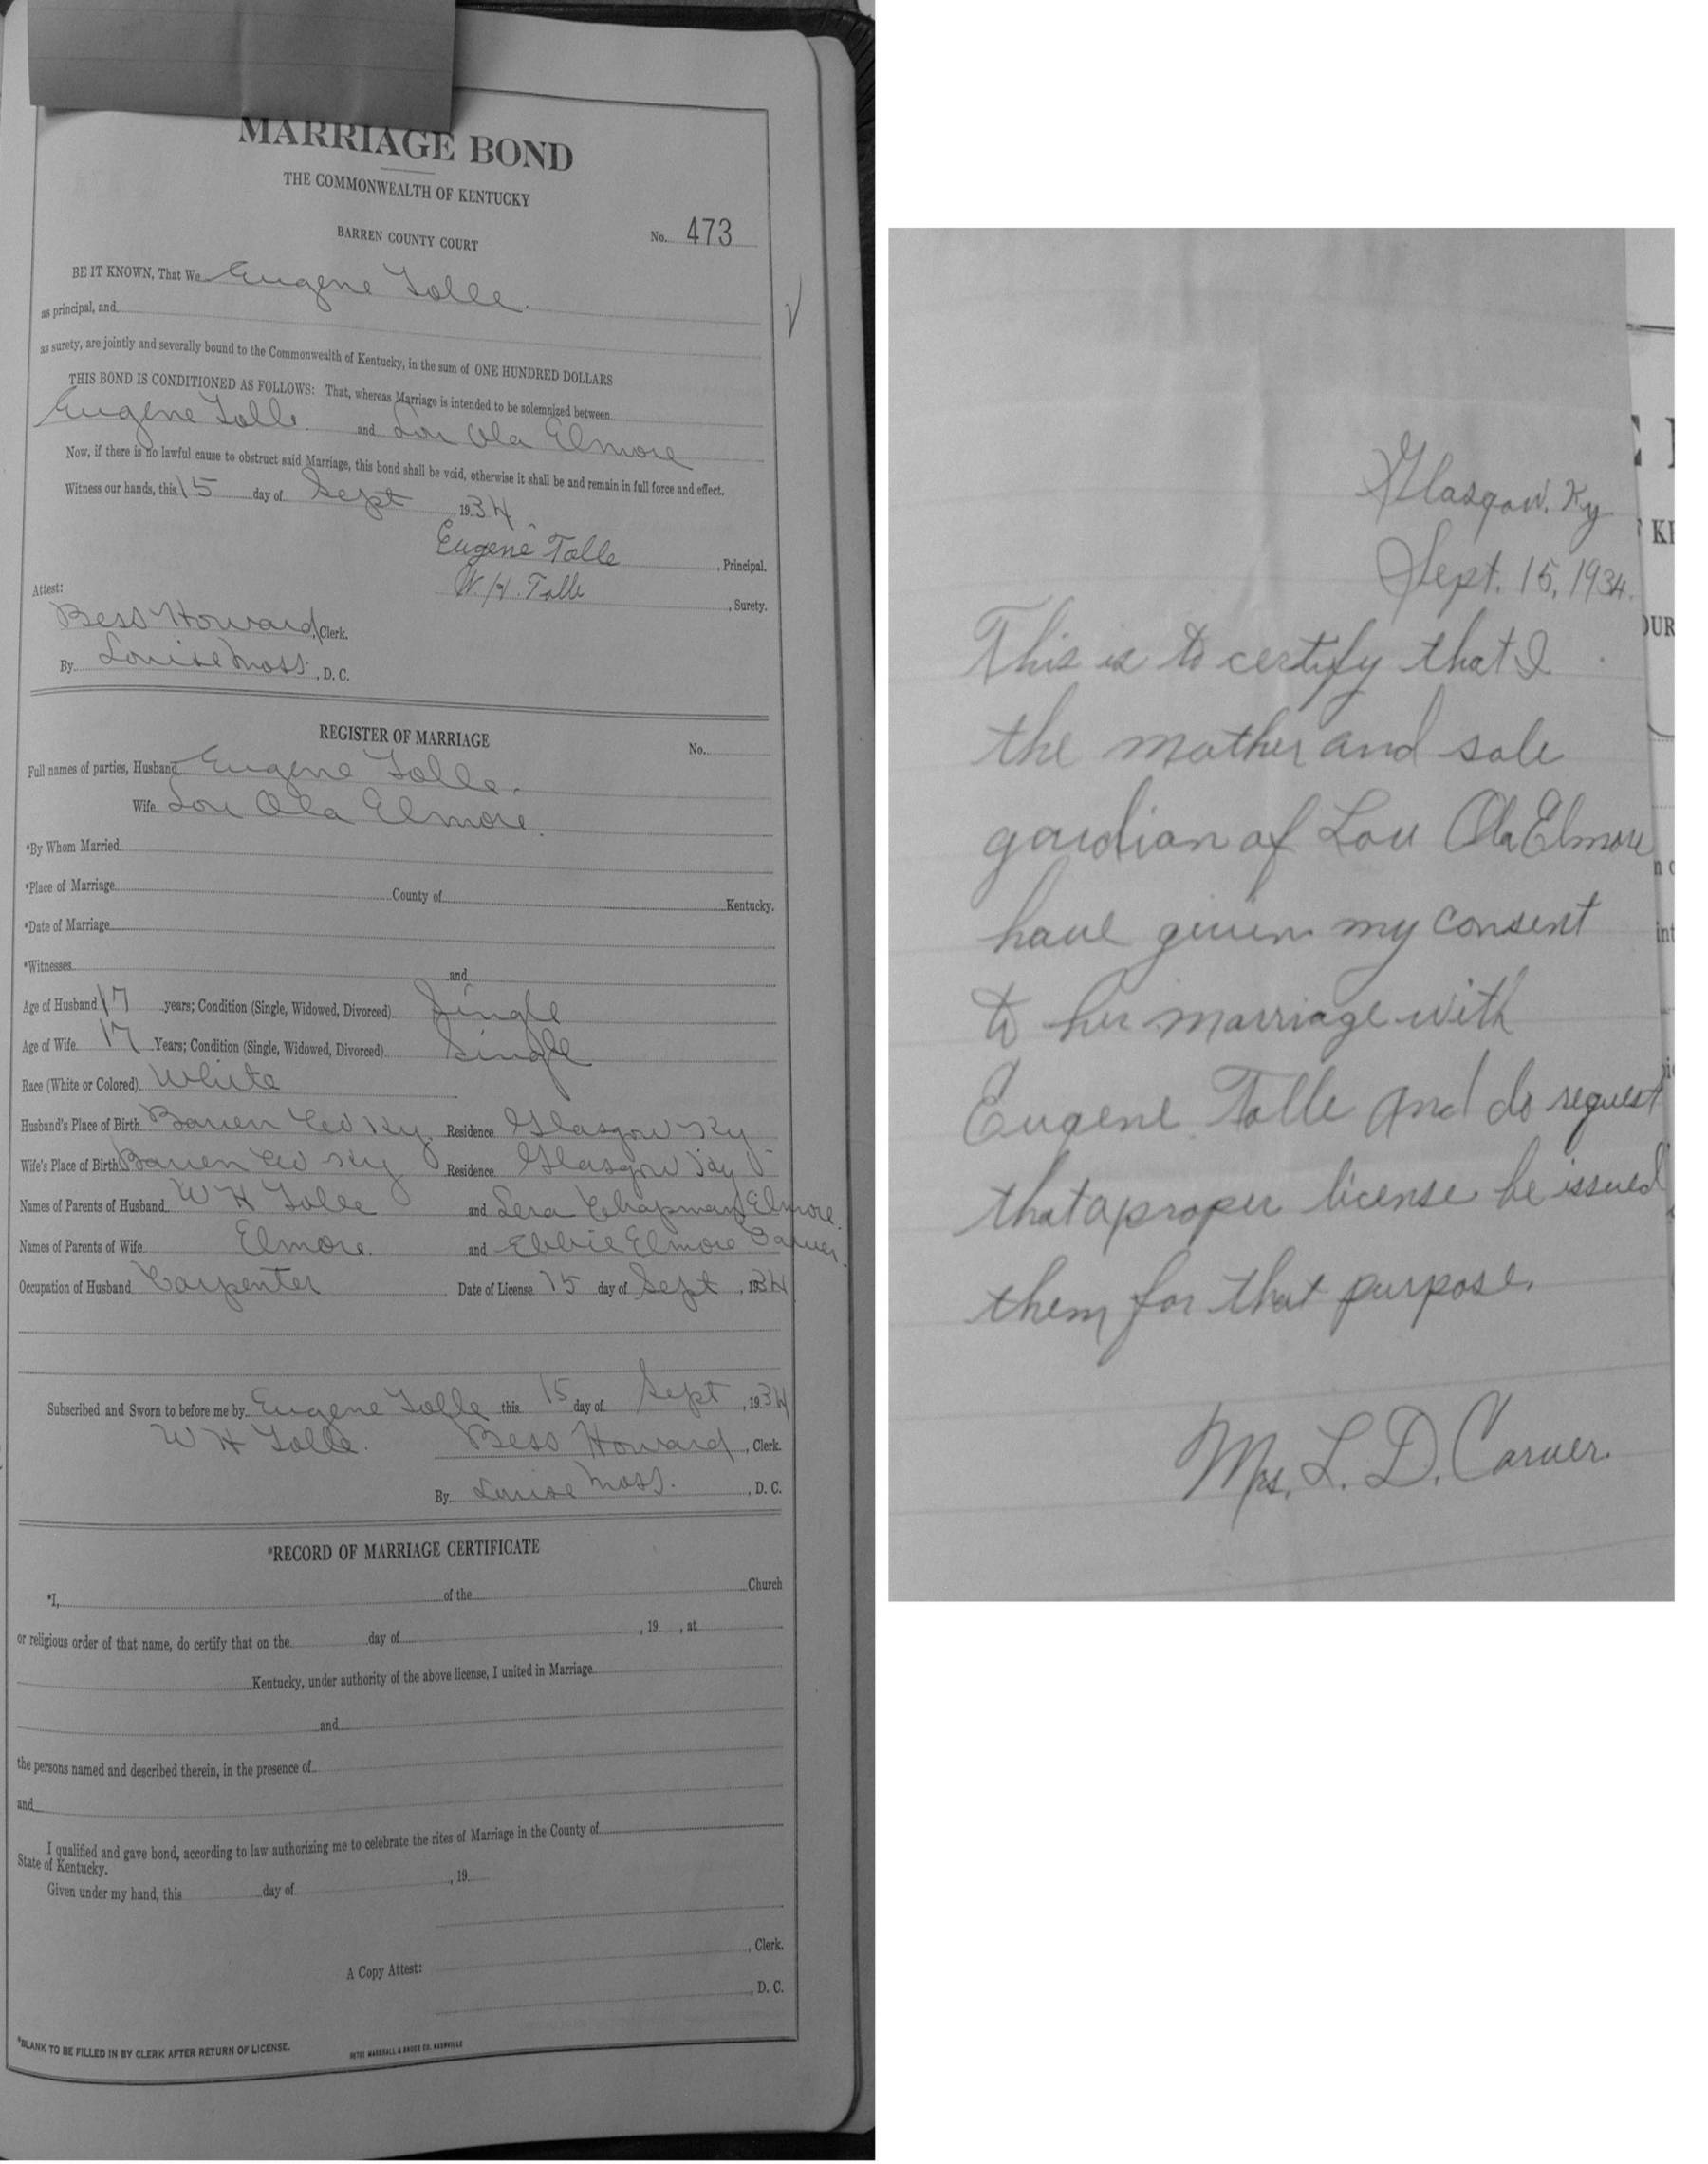 MARRIAGE BOND
THE COMMONWEALTH OF KENTUCKY
BARREN COUNTY COURT
No. 473
BE IT KNOWN, That We Eugene Tolle.
as principal, and
as surety, are jointly and severally bound to the Commonwealth of Kentucky, in the sum of ONE HUNDRED DOLLARS
THIS BOND IS CONDITIONED AS FOLLOWS: That, whereas Marriage is intended to be solemnized between
Eugene Tolle. and Lou Ola Elmore
Now, if there is no lawful cause to obstruct said Marriage, this bond shall be void, otherwise it shall be and remain in full force and effect.
Witness our hands, this 15 day of Sept, 1934
Eugene Tolle, Principal.
W. H. Tolle, Surety.
Attest:
Bess Howard, Clerk.
By Louise Moss., D. C.
REGISTER OF MARRIAGE No.
Full names of parties, Husband Eugene Tolle.
Wife Lou Ola Elmore.
*By Whom Married
*Place of Marriage County of Kentucky.
*Date of Marriage
*Witnesses and
Age of Husband 17 years; Condition (Single, Widowed, Divorced) Single
Age of Wife 17 Years; Condition (Single, Widowed, Divorced) Single
Race (White or Colored) White
Husband's Place of Birth Barren Co Ky. Residence Glasgow Ky
Wife's Place of Birth Barren Co Ky Residence Glasgow Ky
Names of Parents of Husband W H Tolle and Lera Chapman Elmore.
Names of Parents of Wife Elmore. and Ebbie Elmore Carver.
Occupation of Husband Carpenter Date of License 15 day of Sept, 1934
Subscribed and Sworn to before me by Eugene Tolle this 15 day of Sept, 1934
W H Tolle. Bess Howard, Clerk.
By Louise Moss., D. C.
*RECORD OF MARRIAGE CERTIFICATE
*I, of the Church
or religious order of that name, do certify that on the day of , 19 , at
Kentucky, under authority of the above license, I united in Marriage
and
the persons named and described therein, in the presence of
and
I qualified and gave bond, according to law authorizing me to celebrate the rites of Marriage in the County of
State of Kentucky.
Given under my hand, this day of , 19
, Clerk.
A Copy Attest:
, D. C.
*BLANK TO BE FILLED IN BY CLERK AFTER RETURN OF LICENSE.
Glasgow. Ky
Sept. 15, 1934.
This is to certify that I
the mother and sole
gaurdian of Lou Ola Elmore
have given my consent
to her marriage with
Eugene Tolle and do request
that a proper license be issued
them for that purpose.
Mrs. L. D. Carver.